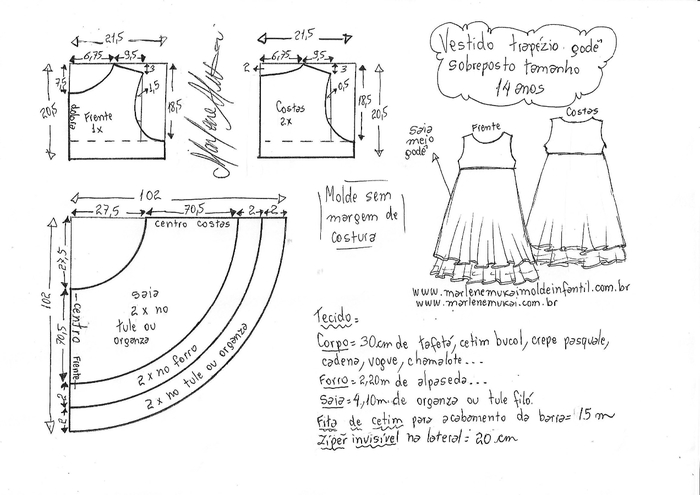 21,5
6,75
9,5
7,5
3
1,5
20,5
18,5
dobra
Frente
1x
21,5
6,75
9,5
2
3
0,5
18,5
20,5
Costas
2x
Vestido trapézio godê
sobreposto tamanho
14 anos
Saia
meio
godê
Frente
Costas
www.marlenemukaimoldeinfantil.com.br
www.marlenemukai.com.br
Molde sem
margem de
costura
102
27,5
70,5
2
2
centro costas
102
27,5
70,5
2
2
centro Frente
saia
2 x no
tule ou
organza
2 x no forro
2 x no tule ou organza
Tecido=
Corpo= 30cm de tafetá, cetim bucol, crepe pasquale,
cadena, vogue, chamalote...
Forro= 2,20m de alpaseda...
Saia= 4,10m de organza ou tule filó.
Fita de cetim para acabamento da barra= 15 m
Ziper invisível na lateral= 20 cm